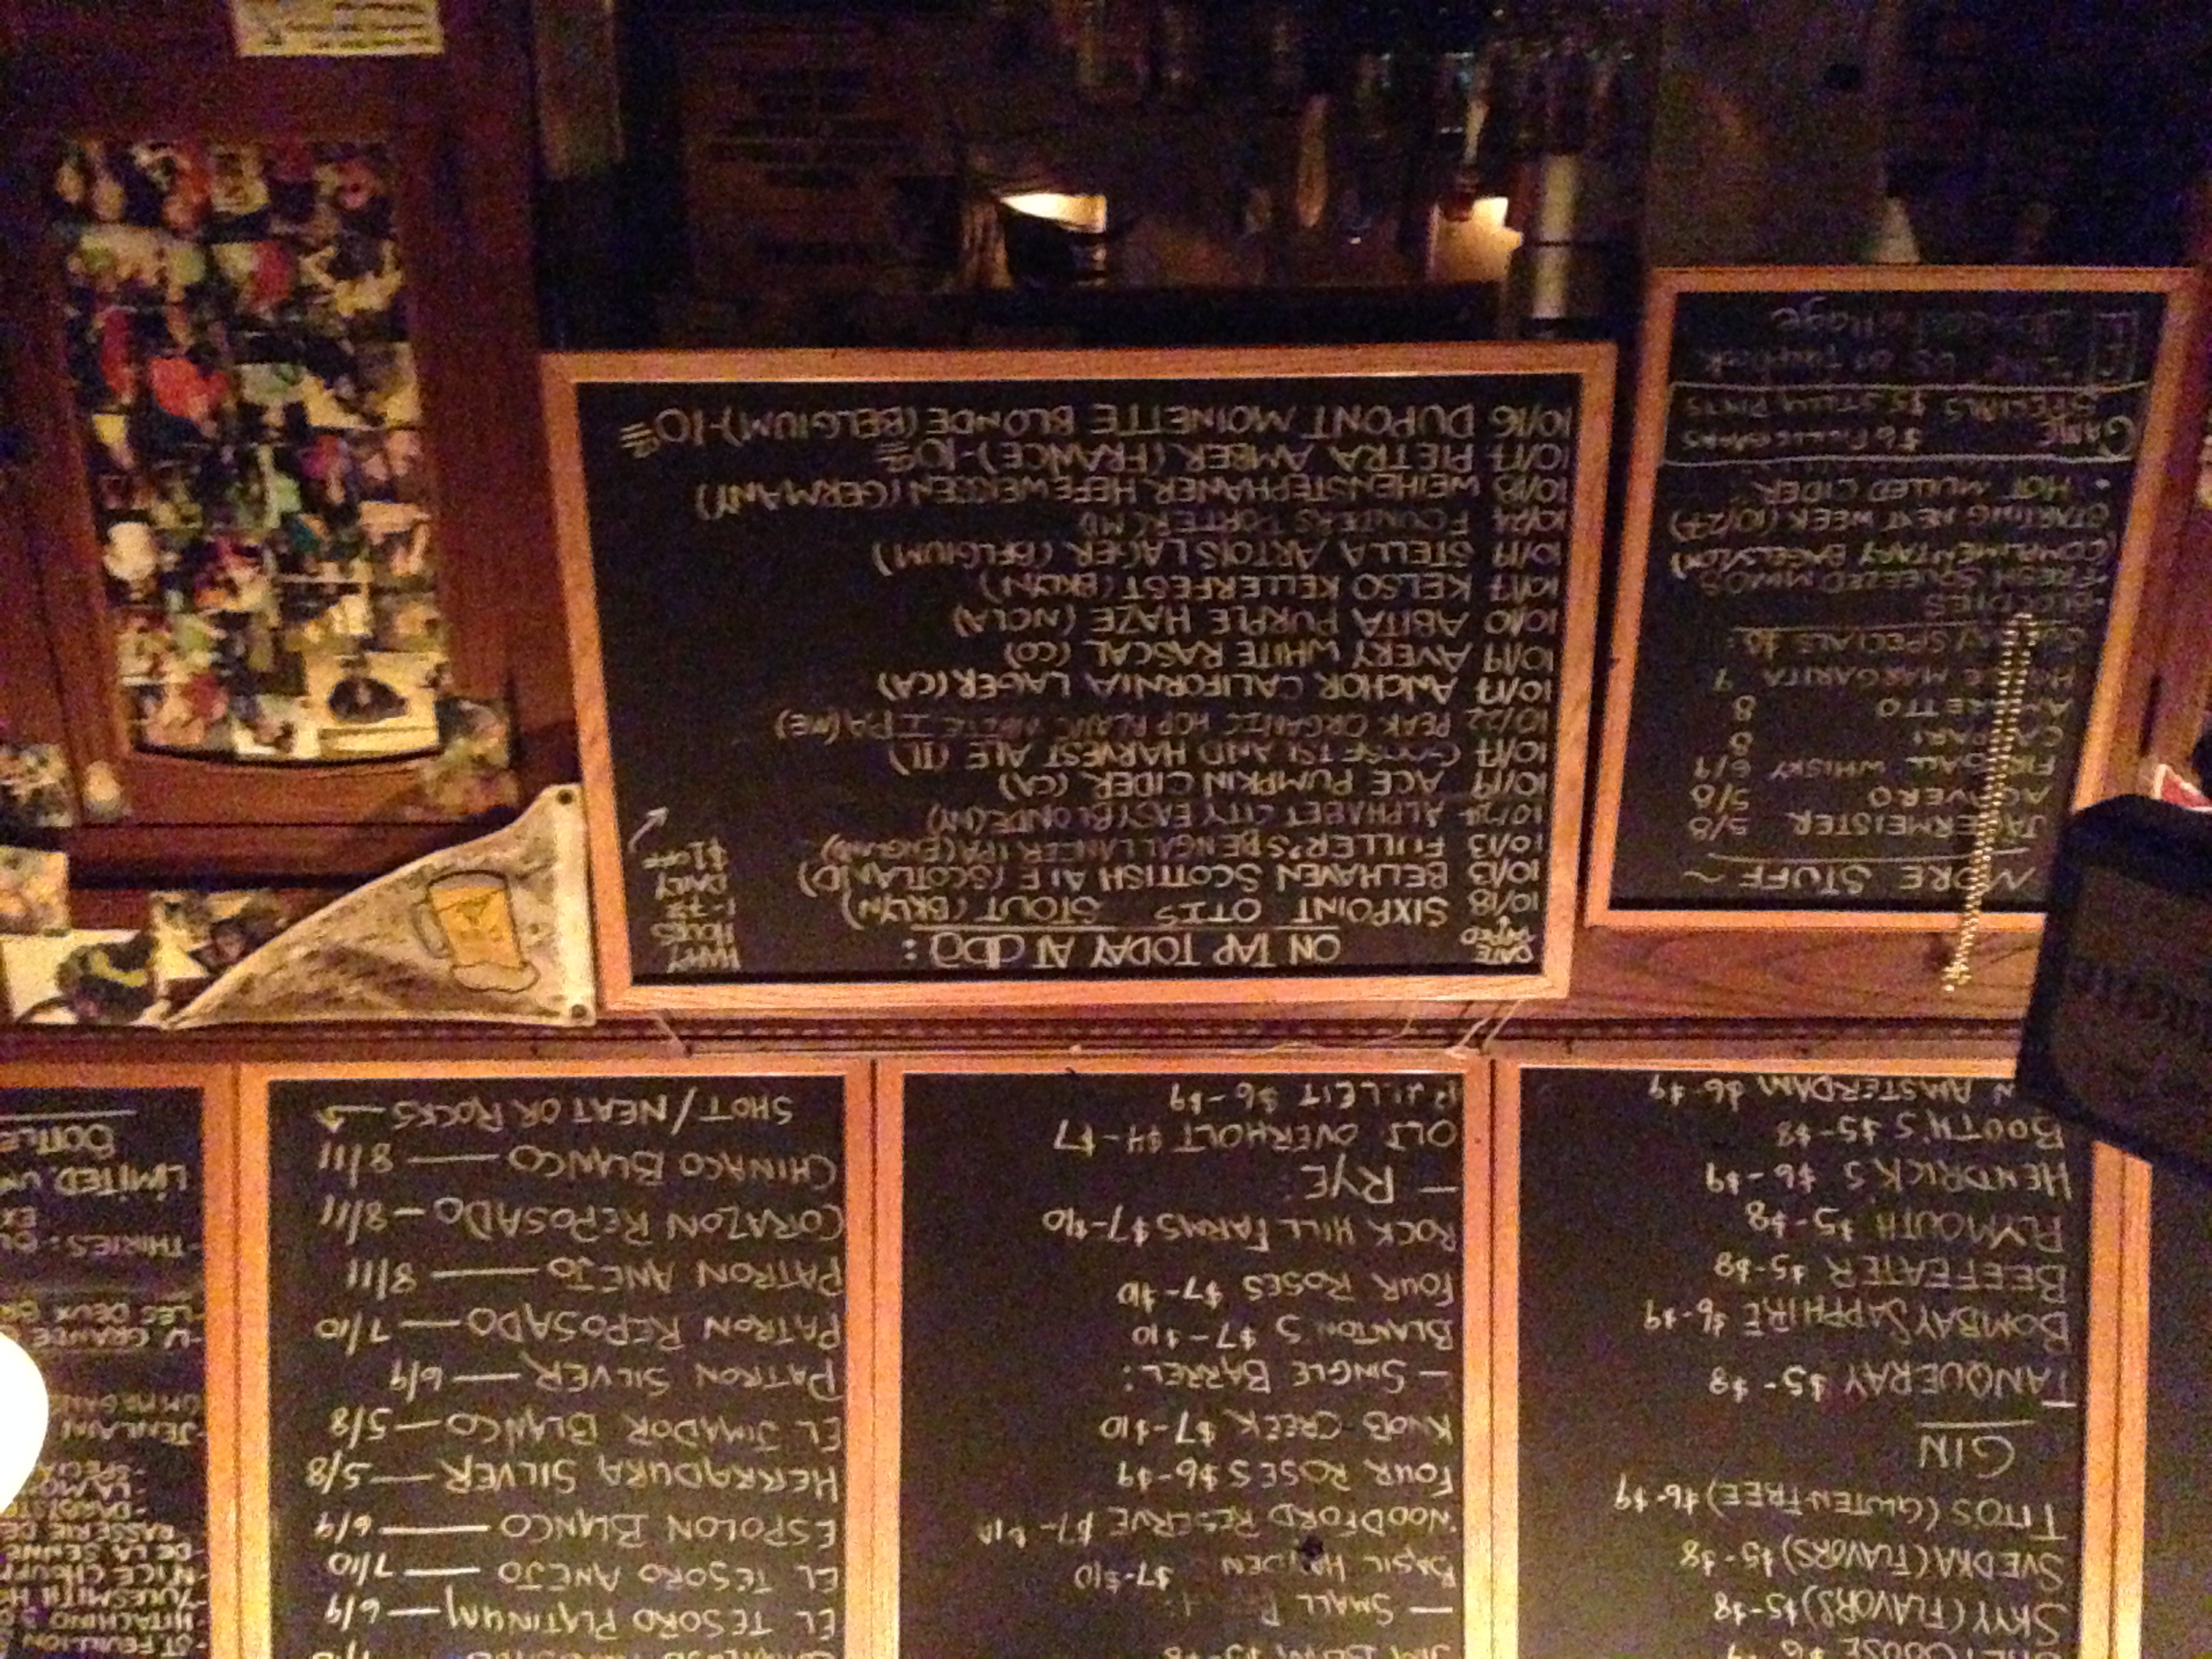 SKYY (FLAVORS) $5-$8
SVEDKA (FLAVORS) $5-$8
TITO'S (GLUTEN FREE) $6-$9
GIN
TANQUERAY $5-$8
BOMBAY SAPPHIRE $6-$9
BEEFEATER $5-$8
PLYMOUTH $5-$8
HENDRICK'S $6-$9
BOOTH'S $5-$8
AMSTERDAM $6-$9
— SMALL
BASIL HAYDEN $7-$10
WOODFORD RESERVE $7-$10
FOUR ROSES $6-$9
KNOB CREEK $7-$10
— SINGLE BARREL:
BLANTON'S $7-$10
FOUR ROSES $7-$10
ROCK HILL FARMS $7-$10
— RYE:
OLD OVERHOLT $4-$7
BULLEIT $6-$9
EL TESORO PLATINUM — 6/9
EL TESORO ANEJO — 7/10
ESPOLON BLANCO — 6/9
HERRADURA SILVER — 5/8
EL JIMADOR BLANCO — 5/8
PATRON SILVER — 6/9
PATRON REPOSADO — 7/10
PATRON ANEJO — 8/11
CORAZON REPOSADO — 8/11
CHINACO BLANCO — 8/11
SHOT/NEAT OR ROCKS
-ST FEUILLIEN
-HITACHINO
-N'ICE CHOUFF
-DE LA SENNE
-JENLAIN
-THIRIES:
LIMITED,
BOTTLE
MORE STUFF ~
JAGERMEISTER 5/8
AGAVERO 5/8
FIREBALL WHISKY 6/9
CAMPARI 8
AMARETTO 8
HOUSE MARGARITA 7
SUNDAY SPECIALS
- BLOODIES
- FRESH SQUEEZED MIMOS
(COMPLIMENTARY BAGELS/LOX)
STARTING NEXT WEEK (10/27)
• HOT MULLED CIDER
GAME SPECIALS
$5 STELLA PINTS
DATE TAPPED
ON TAP TODAY AT dbg:
HAPPY HOURS 1-7:30 DAILY $1 OFF
10/18 SIXPOINT OTIS STOUT (BKLYN)
10/13 BELHAVEN SCOTTISH ALE (SCOTLAND)
10/13 FULLER'S BENGAL LANCER IPA (ENGLAND)
ALPHABET CITY EASY BLONDE (NY)
10/19 ACE PUMPKIN CIDER (CA)
10/17 GOOSE ISLAND HARVEST ALE (IL)
10/22 PEAK ORGANIC HOP BLANC WHITE IPA (ME)
10/17 ANCHOR CALIFORNIA LAGER (CA)
10/19 AVERY WHITE RASCAL (CO)
10/10 ABITA PURPLE HAZE (NOLA)
10/17 KELSO KELLERFEST (BKLYN)
10/19 STELLA ARTOIS LAGER (BELGIUM)
10/24 FOUNDERS PORTER (MI)
10/18 WEIHENSTEPHANER HEFEWEISSEN (GERMANY)
10/17 PIETRA AMBER (FRANCE) - 10oz
10/16 DUPONT MOINETTE BLONDE (BELGIUM) - 10oz